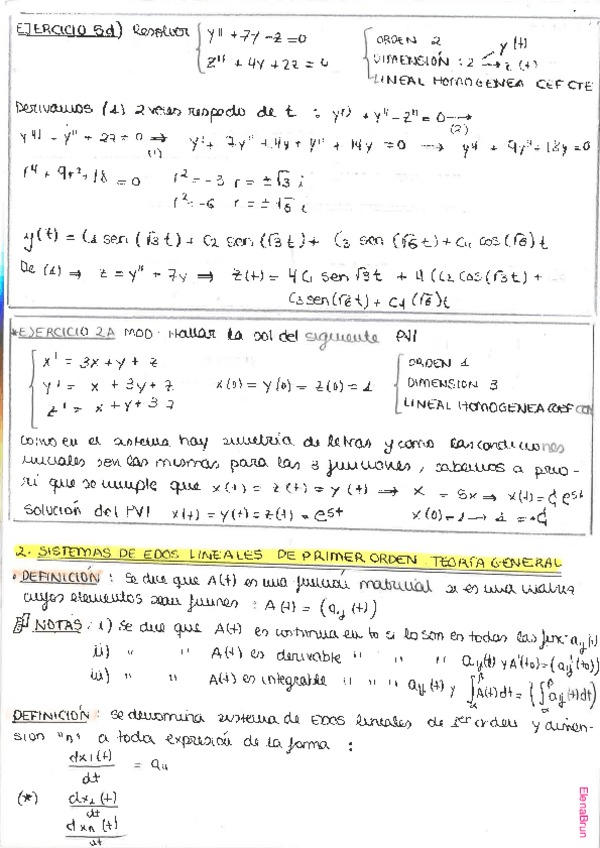 EJERCICIO 5d) Resolver { y'' + 7y - z = 0 { ORDEN 2
z'' + 4y + 2z = 0 DIMENSIÓN : 2 y(t) z(t)
LINEAL HOMOGENEA COEF CTE
Derivamos (1) 2 veces respecto de t :
r⁴ + 9r² + 18 = 0 r² = -3 r = ± √3 i
r² = -6 r = ± √6 i
y(t) = C1 sen (√3 t) + C2 sen (√3 t) + C3 sen (√6 t) + C4 cos (√6) t
De (1) → z = y'' + 7y ⇒ z(t) = 4C1 sen √3t + 4 (C2 cos (√3 t) +
C3 sen (√6 t) + C4 (√6) t
EJERCICIO 2A MOD. Hallar la sol del siguiente PVI
{ x' = 3x + y + z { ORDEN 1
y' = x + 3y + z x(0) = y(0) = z(0) = 1 DIMENSION 3
z' = x + y + 3z LINEAL HOMOGENEA COEF CON
Como en el sistema hay simetría de letras y como las condiciones
iniciales son las mismas para las 3 funciones, sabemos a prio-
ri que se cumple que x(t) = z(t) = y(t) → x = 5x ⇒ x(t) = C e5t
solución del PVI x(t) = y(t) = z(t) = e5t x(0) = 1 → 1 = C
2. SISTEMAS DE EDOS LINEALES DE PRIMER ORDEN. TEORÍA GENERAL
• DEFINICIÓN : Se dice que A(t) es una función matricial si es una matriz
cuyos elementos sean funciones : A(t) = (aij (t))
NOTAS : i) Se dice que A(t) es continua en to si lo son todas las func. aij(t)
ii) " " A(t) es derivable " " " aij(t) y A'(to) = (aij'(to))
iii) " " A(t) es integrable " " " aij(t) y ∫A(t)dt = (∫aij(t)dt)
DEFINICIÓN : Se denomina sistema de EDOS lineales de 1er orden y dimen-
sion "n" a toda expresión de la forma :
dx1(t)/dt = a11
(*) dx2(t)/dt
dxn(t)/dt
ElenaBrun